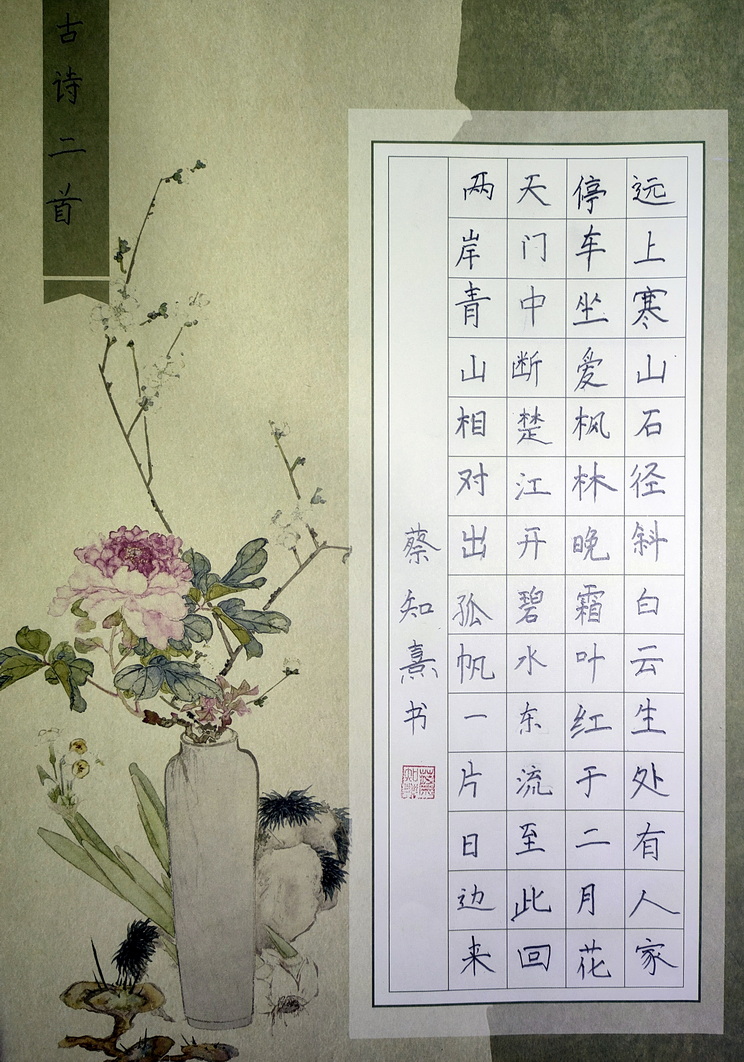 古诗二首
远上寒山石径斜白云生处有人家
停车坐爱枫林晚霜叶红于二月花
天门中断楚江开碧水东流至此回
两岸青山相对出孤帆一片日边来
蔡知熹书